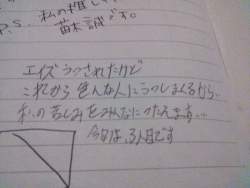 P.S. 私の推し
苗木誠です。
エイズうつされたけど
これから色んな人にうつしまくるから
私の苦しみをみんなにつたえます…
今日は、3人目です